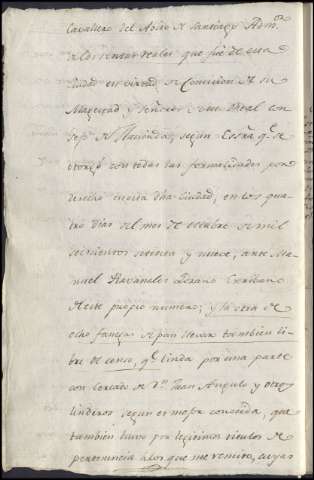 Cavallero del Abito de Santiago Adm.or
de las rentas reales que fue de esta
ciudad en virtud de Comision de su
Magestad y señores de su Real con
sejo de Hacienda, segun Escrâ q.e se
otorgó con todas las formalidades por
derecho en dha Ciudad, en los qua
tro dias del mes de octubre de mil
setecientos setenta y nueve, ante Ma
nuel Ravanales Lozano Escribano
de este propio numero; y la otra de
ocho fanegas de pan llevar tambien li
bre de censo, q.e linda por una parte
con Cercado de D.n Juan Angulo y otros
linderos segun es mas conocida, que
tambien huvo por legitimos titulos de
pertenencia a los que me remito, cuyas